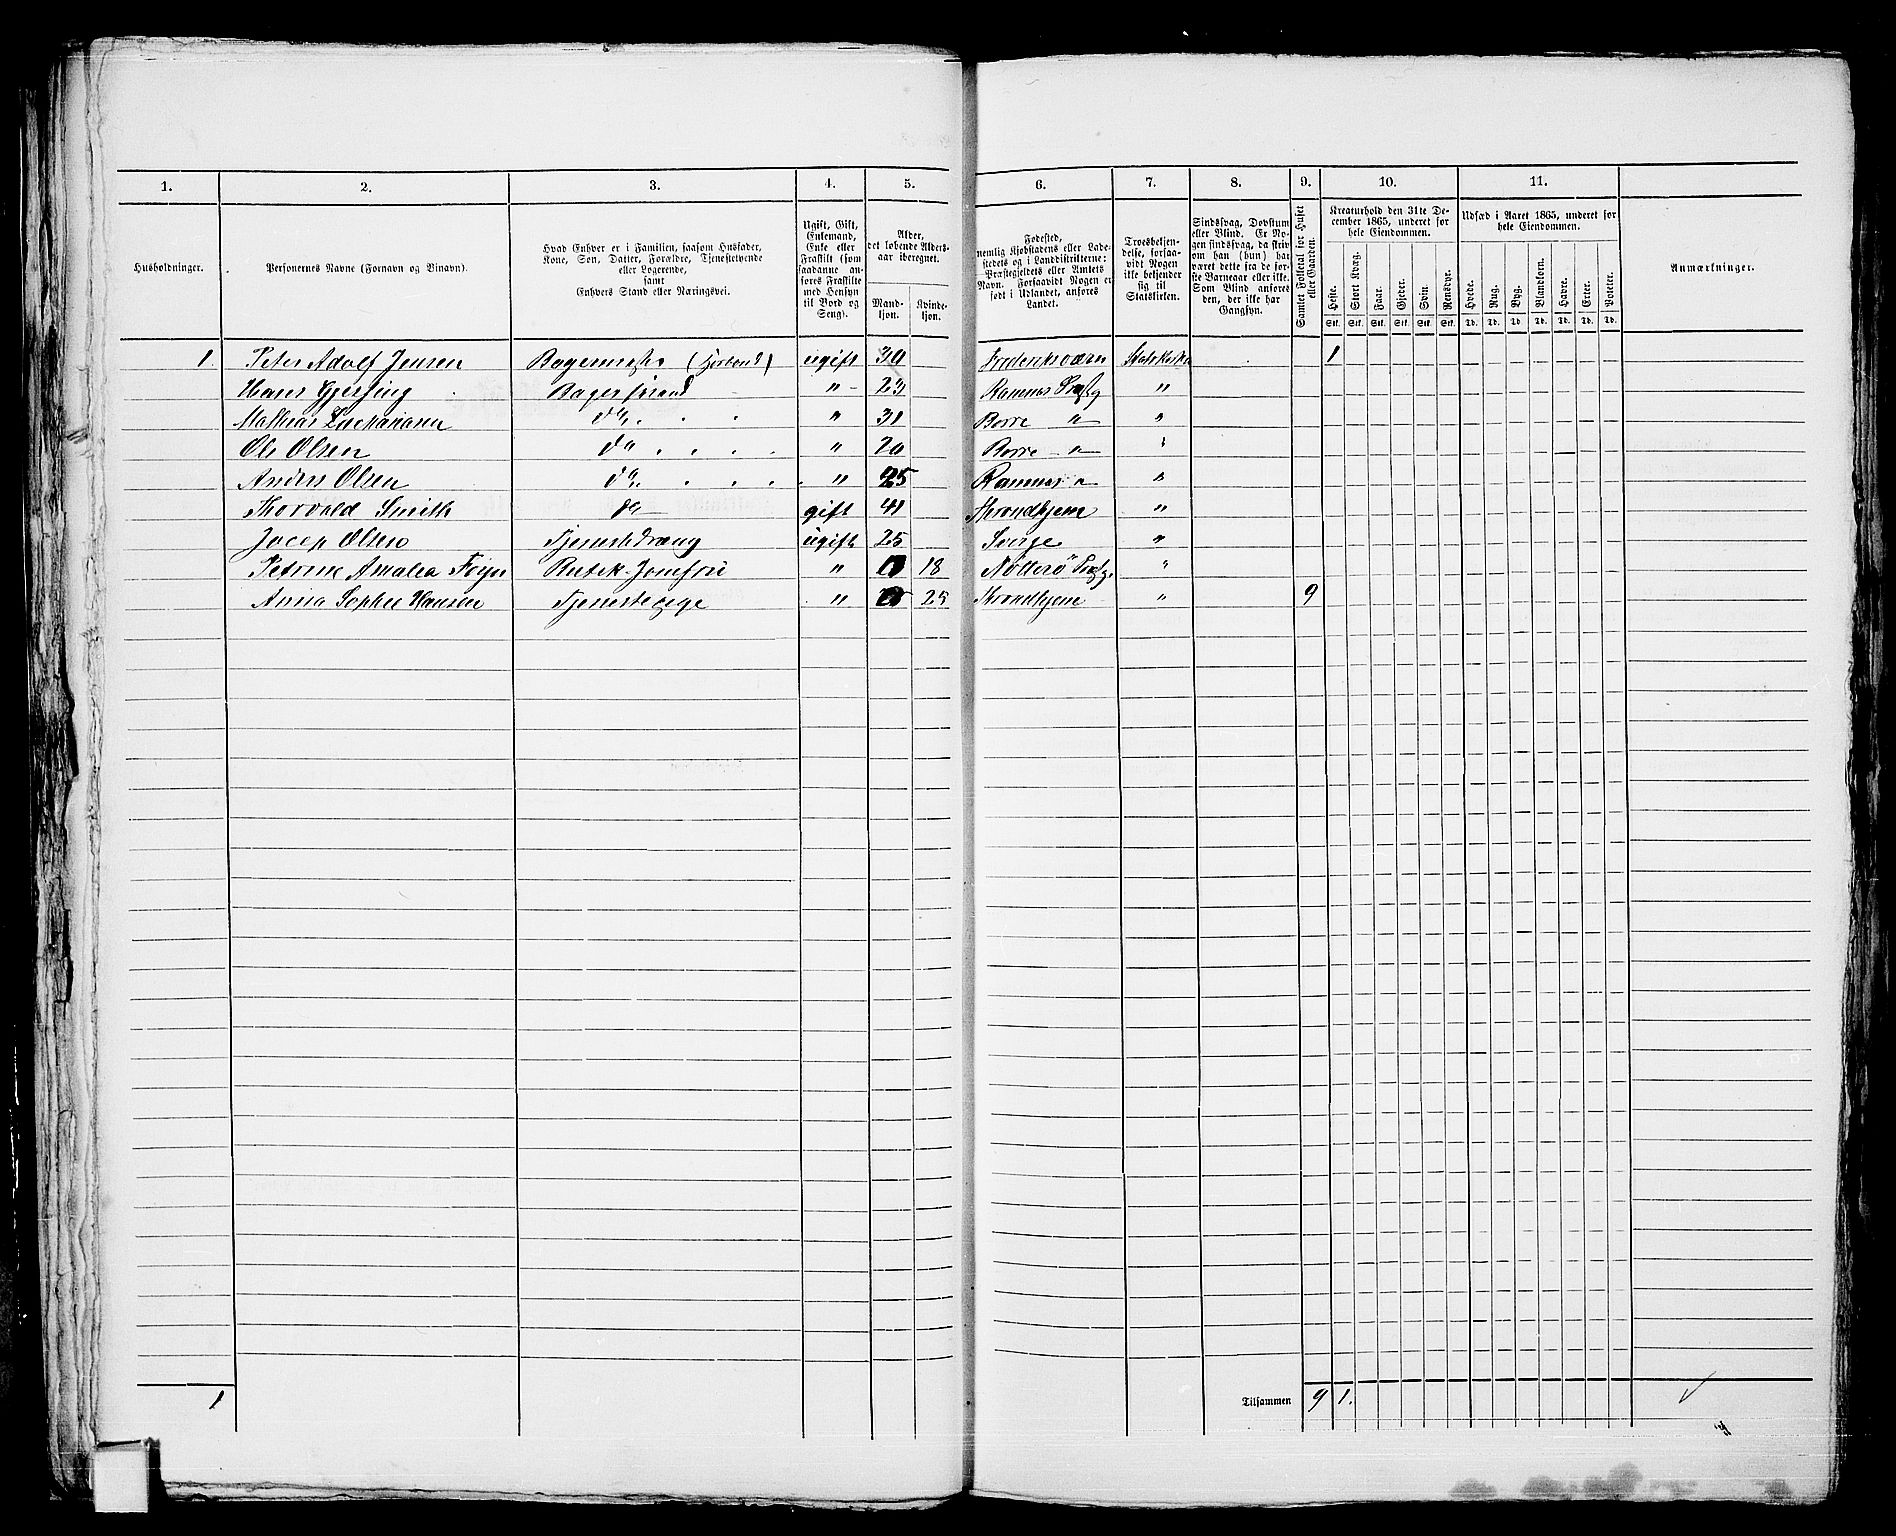 1. 2. 3. 4. 5. 6. 7. 8. 9. 10. 11.
Husholdninger.
Personernes Navne (Fornavn og Binavn).
Hvad Enhver er i Familien, saasom Husfader,
Kone, Søn, Datter, Forældre, Tjenestetyende
eller Logerende,
samt
Enhvers Stand eller Næringsvei.
Ugift, Gift,
Enkemand,
Enke eller
Fraskilt (som
saadanne an-
føres Fraskilte
med Hensyn
til Bord og
Seng).
Alder,
det løbende Alders-
aar iberegnet.
Mand-
kjøn.
Kvinde-
kjøn.
Fødested,
nemlig Kjøbstadens eller Lade-
stedets og i Landdistrikterne:
Præstegjeldets eller Amtets
Navn. Forsaavidt Nogen er
født i Udlandet, anføres
Landet.
Troesbekjen-
delse, forsaa-
vidt Nogen
ikke bekjender
sig til
Statskirken.
Sindssvag, Døvstum
eller Blind. Er No-
gen sindssvag, da skriv
om han (hun) har
været dette fra de før-
ste Barneaar eller ikke.
Som Blind anføres
den, der ikke har
Gangsyn.
Samlet Folketal for Huset
eller Gaarden.
Kreaturhold den 31te De-
cember 1865, underet for
hele Eiendommen.
Heste. Stort Kvæg. Faar. Gjeder. Svin. Rensdyr.
Stk. Stk. Stk. Stk. Stk. Stk.
Udsæd i Aaret 1865, underet for
hele Eiendommen.
Hvede. Rug. Byg. Blandkorn. Havre. Erter. Poteter.
Td. Td. Td. Td. Td. Td. Td.
Anmærkninger.
1. Peter Adolf Jensen Bagermester ugift 30 Frederiksværn Statskirken 1
Hans Gjersing Bagersvend " 23 Ramnes Præstg "
Mathias Zachariasen do " 31 Borre " "
Ole Olsen do " 20 Borre " "
Anders Olsen do " 25 Ramnes " "
Thorvald Smith do gift 41 Throndhjem "
Jocep Olsen Tjenestedreng ugift 25 Sverge "
Petrine Amalia Foyn Butik-Jomfru " 18 Nötterö Præstg. "
Anna Sophie Hansen Tjenestepige " 25 Throndhjem " 9
1 Tilsammen 9 1.